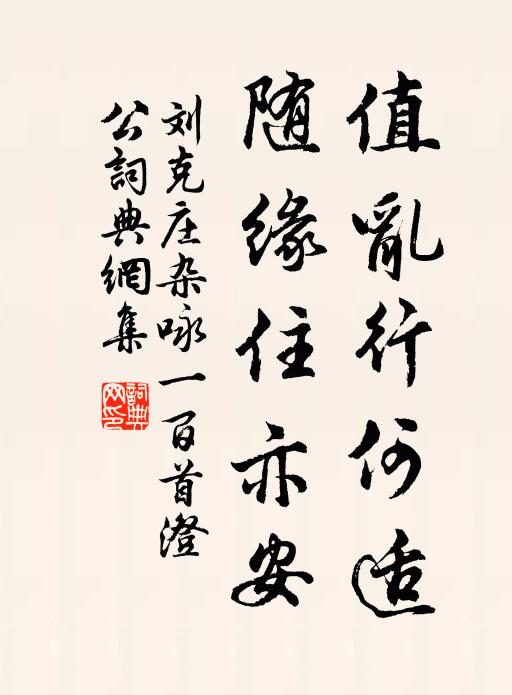 值亂行何适
随緣住亦安
刘克庄杂咏一百首澄
公詞典網集
詞典
网印